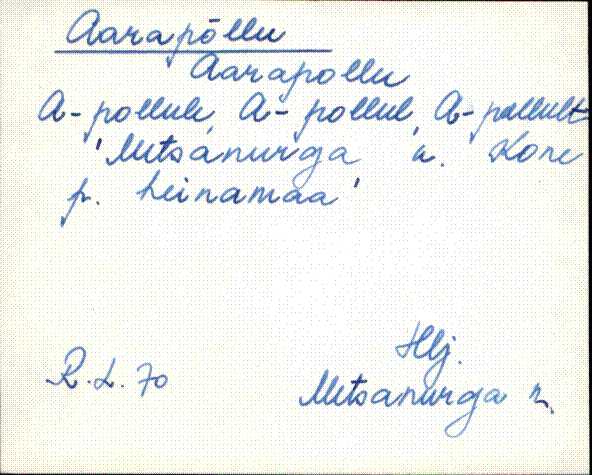 Aarapõllu
Aarapollu
A-pollule, A-pollul, A-pollult
'Metsanurga k. Kone
p. heinamaa'
Hlj.
R.L. 70
Metsanurga k.